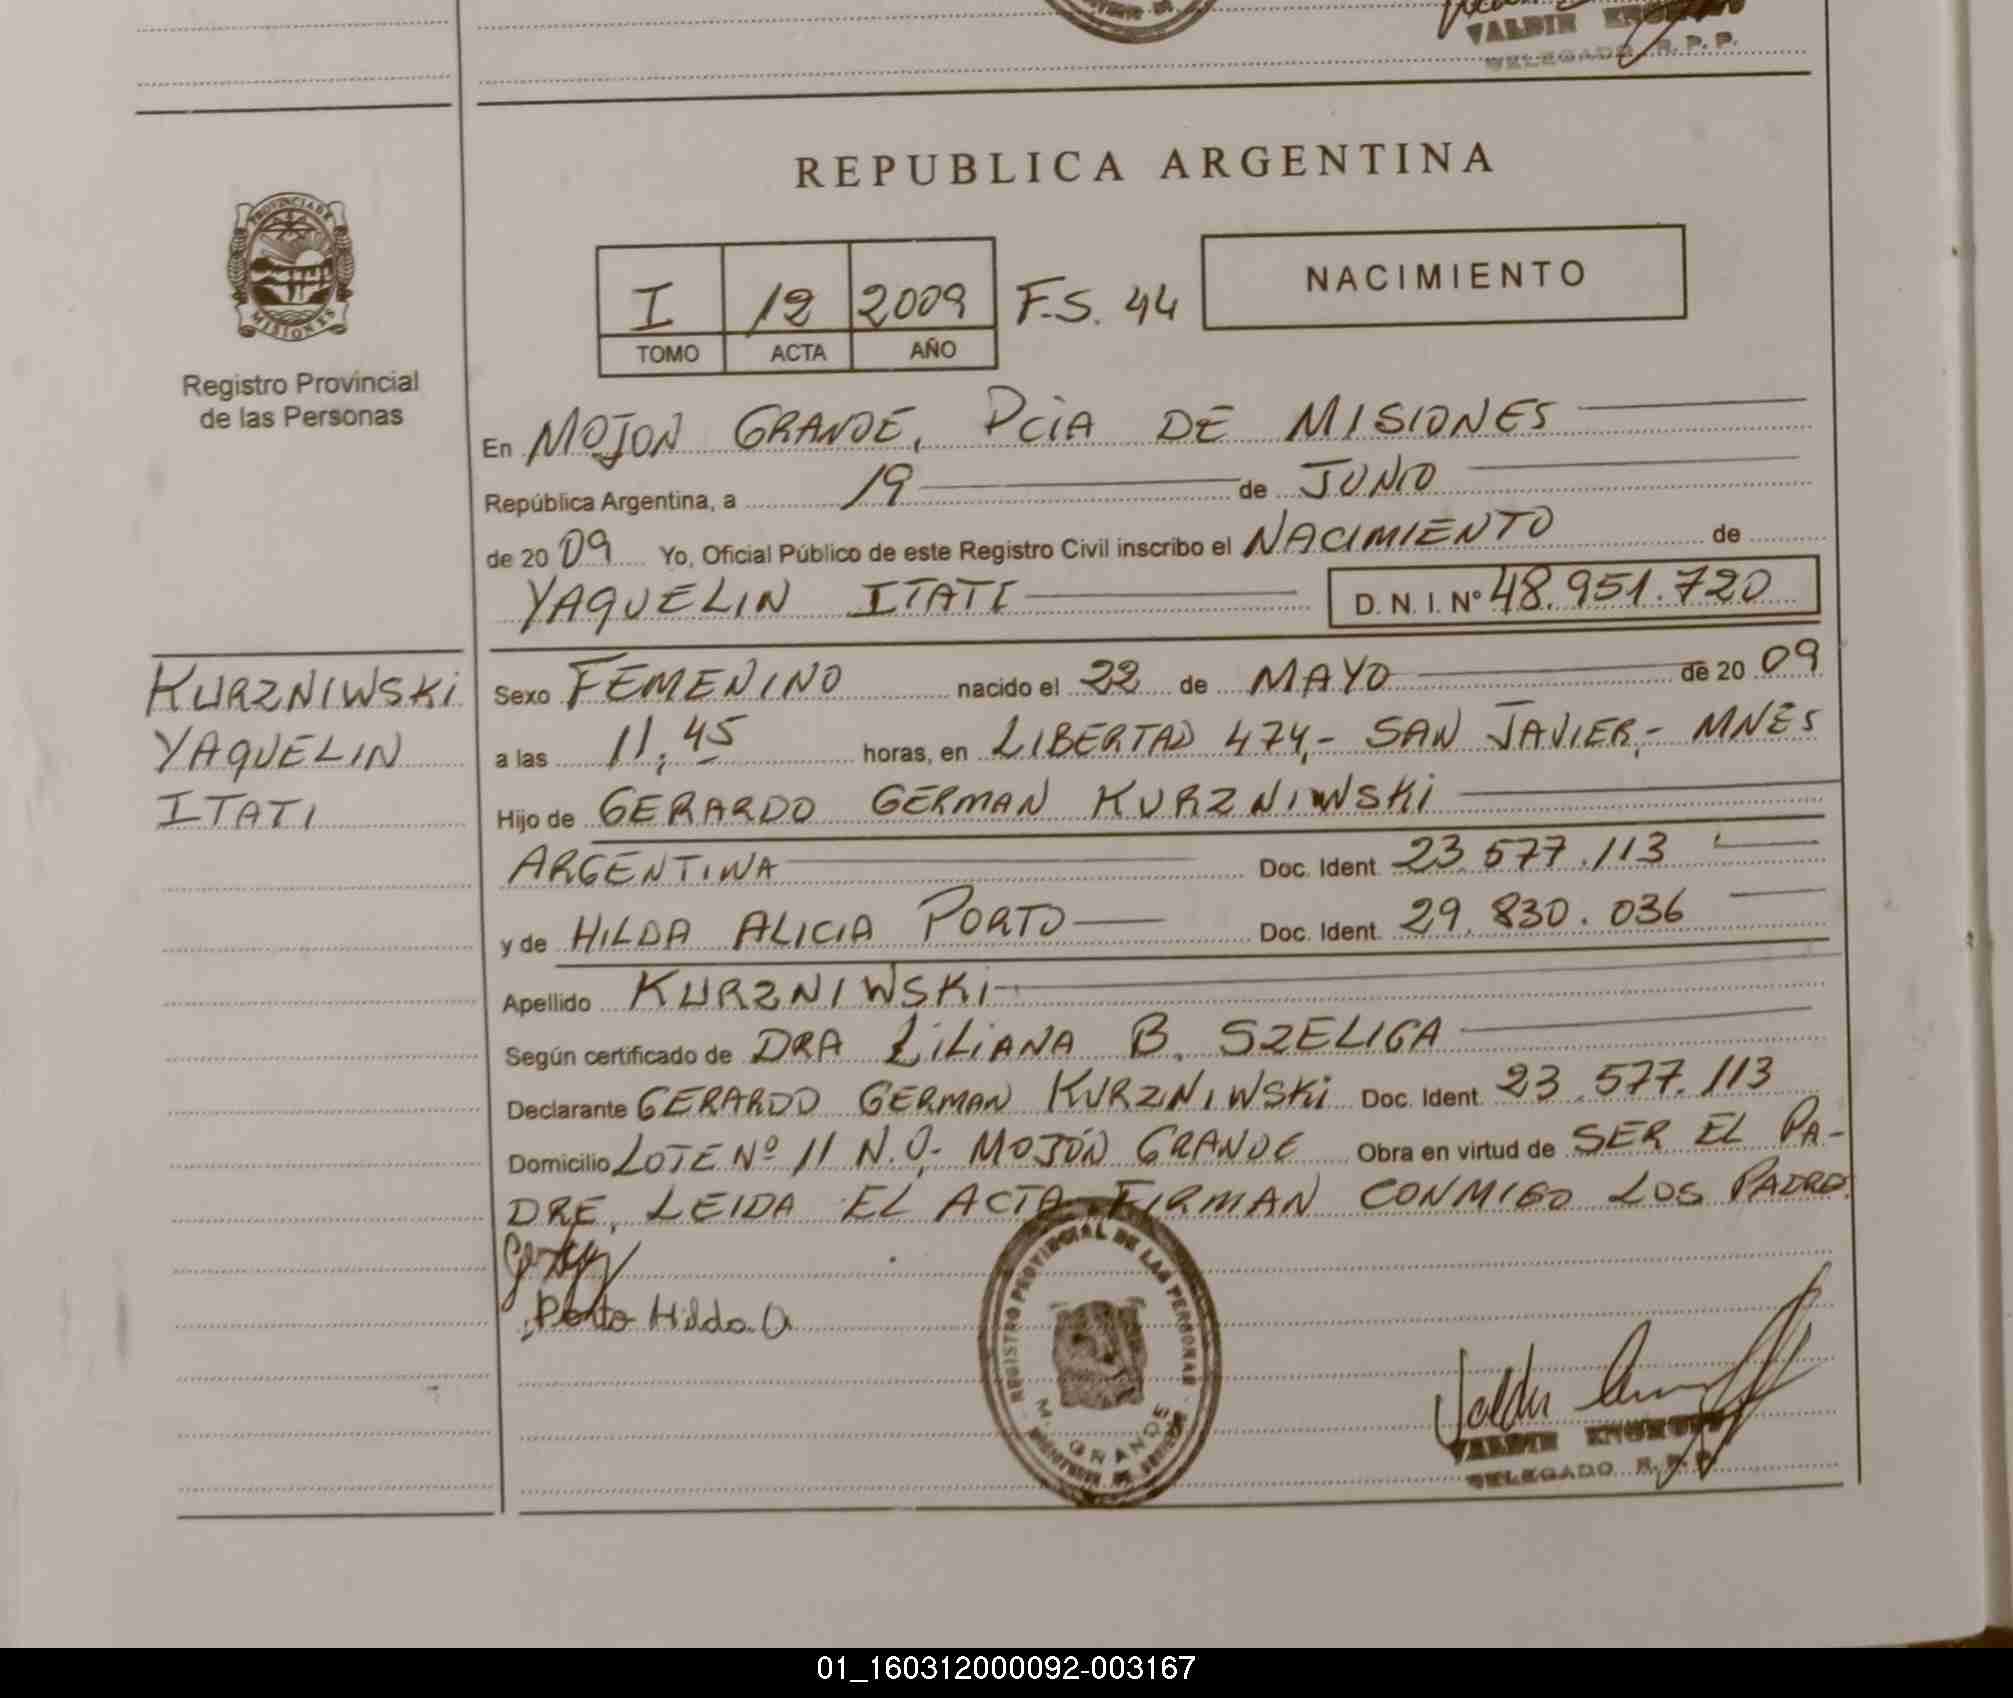 VALDIR
DELEGADO R.P.P.
REPUBLICA ARGENTINA
PROVINCIA DE
MISIONES
Registro Provincial
de las Personas
I 12 2009 F.S. 44
TOMO ACTA AÑO
NACIMIENTO
En MOJON GRANDE, PCIA DE MISIONES
República Argentina, a 19 de JUNIO
de 20 09 Yo, Oficial Público de este Registro Civil inscribo el NACIMIENTO de
YAQUELIN ITATI D. N. I. Nº 48.951.720
KURZNIWSKI
YAQUELIN
ITATI
Sexo FEMENINO nacido el 22 de MAYO de 20 09
a las 11,45 horas, en LIBERTAD 474,- SAN JAVIER,- MNES
Hijo de GERARDO GERMAN KURZNIWSKI
ARGENTINA Doc. Ident. 23.577.113
y de HILDA ALICIA PORTO Doc. Ident. 29.830.036
Apellido KURZNIWSKI
Según certificado de DRA LILIANA B. SZELIGA
Declarante GERARDO GERMAN KURZNIWSKI Doc. Ident. 23.577.113
Domicilio LOTE Nº 11 N.O,- MOJÓN GRANDE Obra en virtud de SER EL PA-
DRE, LEIDA EL ACTA FIRMAN CONMIGO LOS PADRES
Porto Hilda A
REGISTRO PROVINCIAL DE LAS PERSONAS
M. GRANDE
VALDIR
DELEGADO R.P.P.
01_160312000092-003167